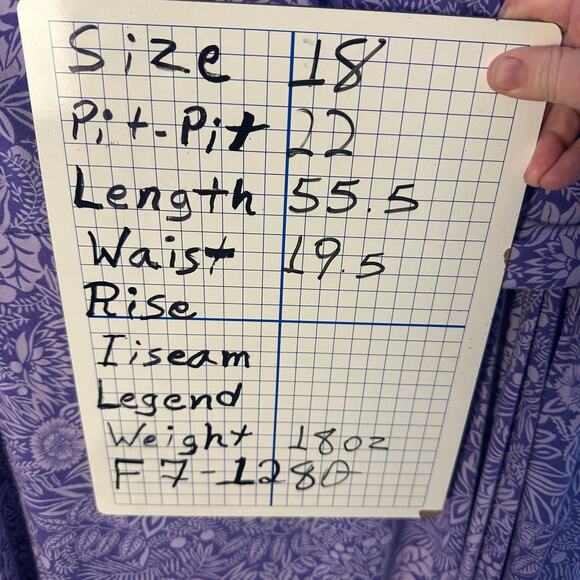 Size 18
Pit-Pit 22
Length 55.5
Waist 19.5
Rise
Iiseam
Legend
Weight 18oz
F7-1280